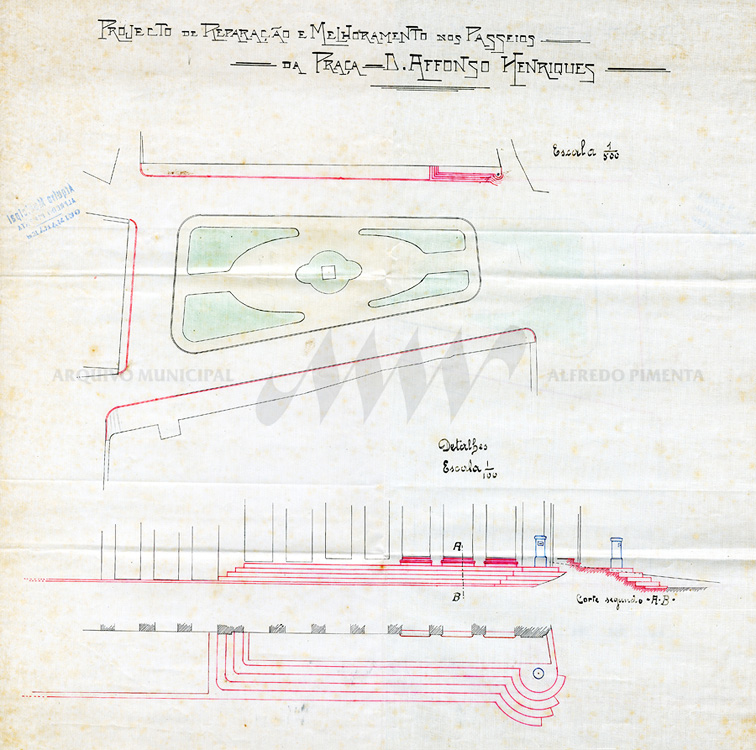 Projecto de Reparação e Melhoramento nos Passeios
da Praça D. Affonso Henriques
Escala 1/500
Arquivo Municipal
ARQUIVO MUNICIPAL ALFREDO PIMENTA
Detalhes
Escala 1/100
A
B
Corte segundo "A-B"